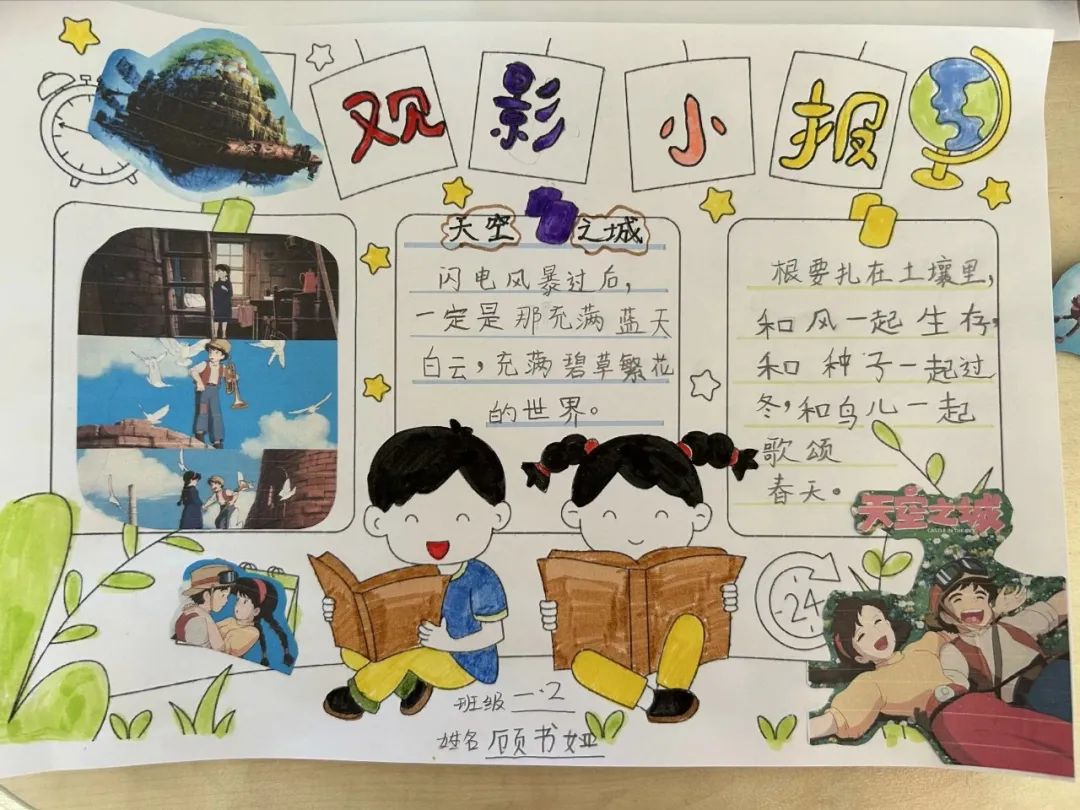 观影小报
天空之城
闪电风暴过后，
一定是那充满蓝天
白云，充满碧草繁花
的世界。
根要扎在土壤里，
和风一起生存，
和种子一起过
冬，和鸟儿一起
歌颂
春天。
天空之城
CASTLE IN THE SKY
24
班级 一.2
姓名 顾书娅